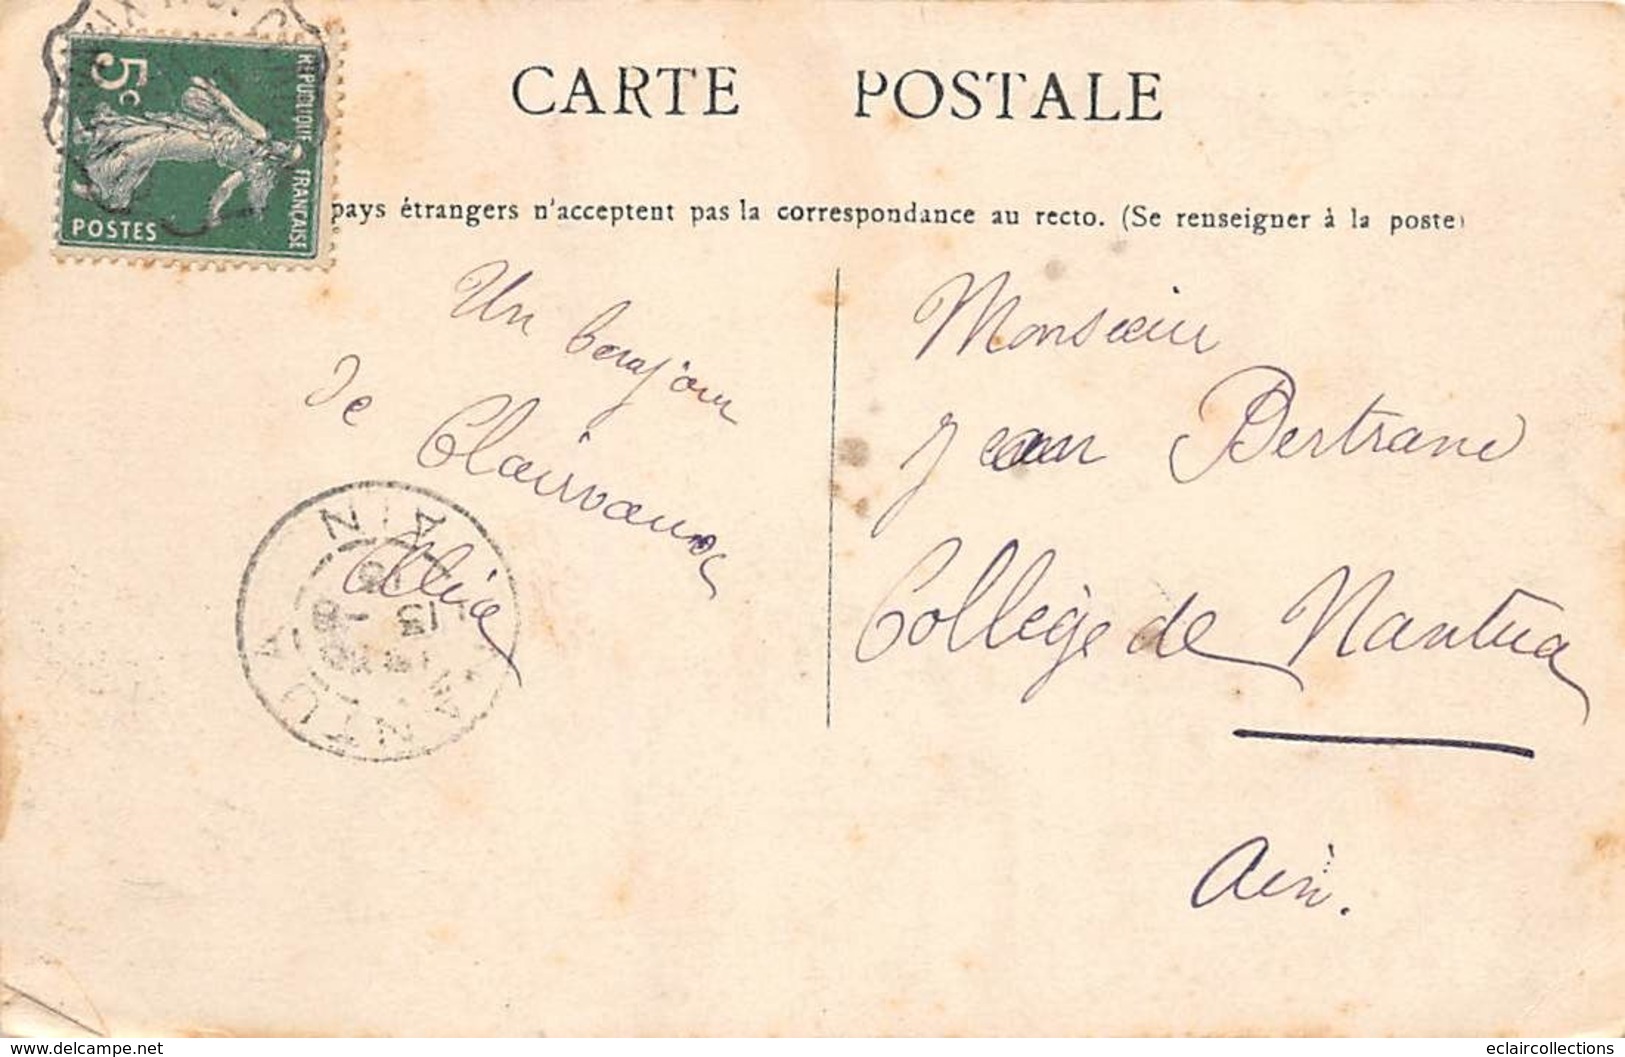 CARTE POSTALE
pays étrangers n'acceptent pas la correspondance au recto. (Se renseigner à la poste)
5c
REPUBLIQUE FRANÇAISE
POSTES
Un bonjour
de Clairvaux
Monsieur
Jean Bertrand
Collège de Nantua
Ain.
NANTUA
AIN
www.eclaircollections.com
eclaircollections